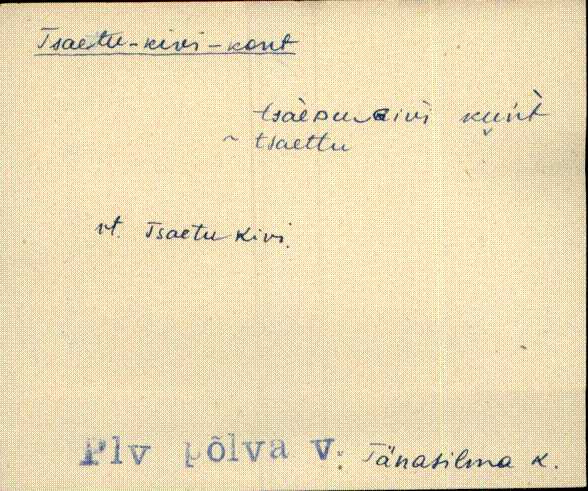 Tsaetu-kivi-kont
tsàeᴅu ɢivi kun̆t̀
~ tsaettu
vt. Tsaetu kivi.
Plv põlva v. Tänasilma k.